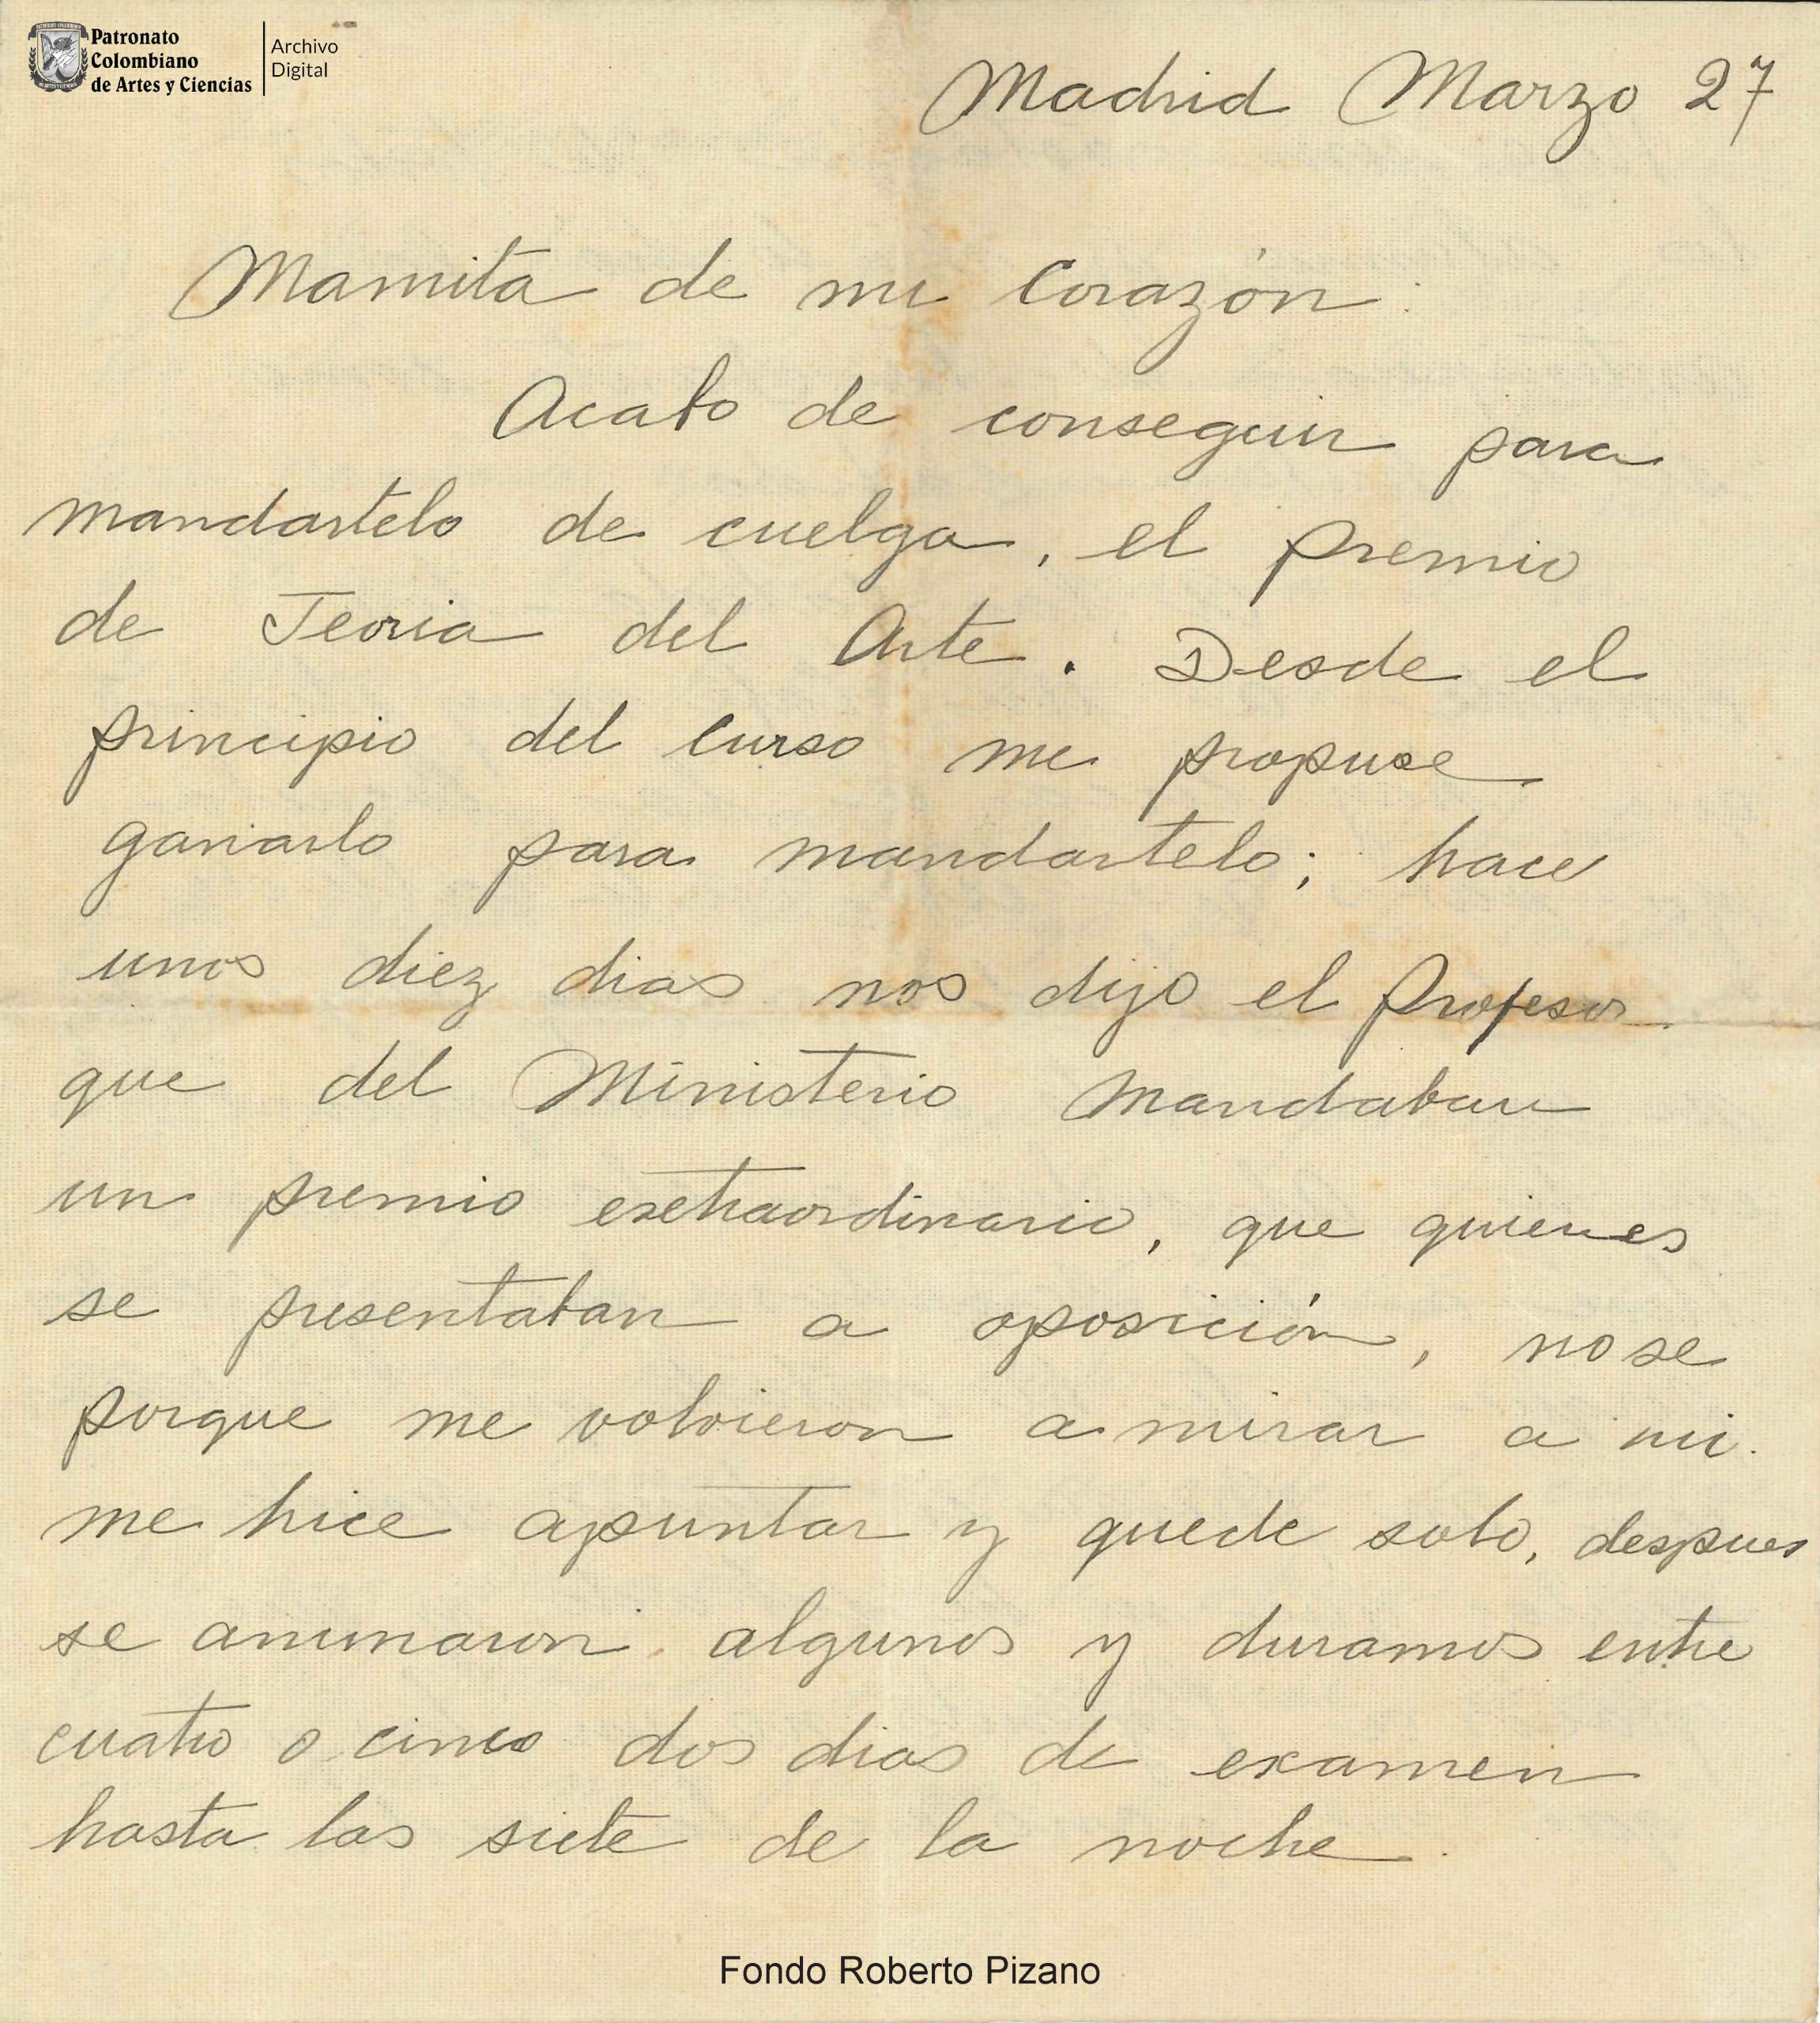 Patronato
Colombiano
de Artes y Ciencias
Archivo
Digital
Madrid Marzo 27
Mamita de mi corazón:
Acabo de conseguir para
mandartelo de cuelga, el premio
de Teoria del Arte. Desde el
principio del curso me propuse
ganarlo para mandartelo; hace
unos diez dias nos dijo el Profesor
que del Ministerio mandaban
un premio exetraordinario, que quienes
se presentaban a oposición, no se
porque me volvieron a mirar a mi.
me hice apuntar y quede solo, despues
se animaron algunos y duramos entre
cuatro o cinco dos dias de examen
hasta las siete de la noche.
Fondo Roberto Pizano